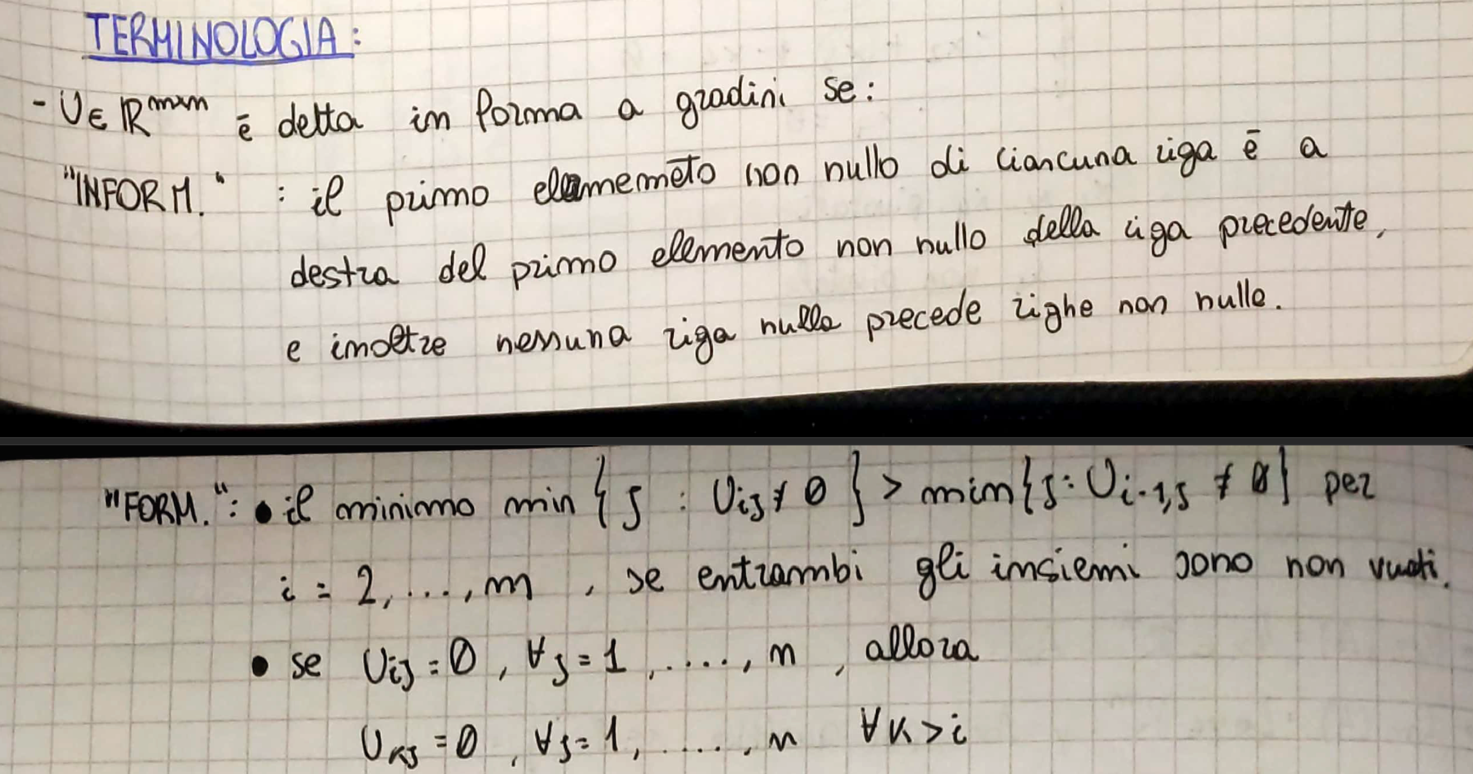 TERMINOLOGIA:
- U ∈ ℝ^{m×n} ē detta in forma a gradini se:
"INFORM." : il primo elememēto non nullo di ciancuna riga ē a
destra del primo elemento non nullo della riga precedente,
e inoltre nessuna riga nulla precede righe non nulle.
"FORM.": • il minimo min { j : U_{ij} ≠ 0 } > min{ j : U_{i-1,j} ≠ 0 } per
i = 2, ..., m , se entrambi gli insiemi sono non vuoti.
• se U_{ij} = 0 , ∀j = 1 , ...., n , allora
U_{kj} = 0 , ∀j = 1, ...., n ∀k > i